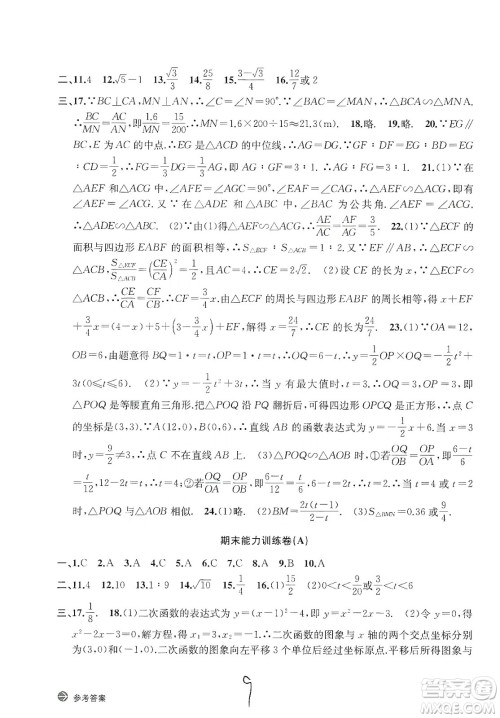 二、11.4 12.√5−1 13.√3/3 14.25/8 15.√3/9 16.12/7或2
三、17.∵BC⊥CA,MN⊥AN,∴∠C=∠N=90°.∵∠BAC=∠MAN,∴△ABC∽△MNA.
∴BC/MN=AC/AN,即1.6/MN=15/200.∴MN=1.6×200÷15≈21(m) 18.略. 19.略. 20.∵EG∥
BC,E是AB的中点,∴EG是△ABC的中位线,∴G为AC的中点.∵GF:DF=EG:BD=
EG:CD=1/2,∴FG=1/2FD,即FD:FG=3:1. 21.(1)∵在
△AEF和△AEG中,∠AFE=∠AGE=90°,∠EAF=∠GAC,∴∠AEF=
∠ACG.又∵在△ADE和△ABC中,∠BAC为公共角.
∴△ADE∽△ABC. (2)由(1)得△AEF∽△ACG,∴AF/AG=AE/AC=3/5 22.(1)∵△ECF的
面积与四边形EABF的面积相等,∴S△ECF:S△ACB=1:2.又∵EF∥AB,∴△ECF∽
△ACB,S△ECF/S△ACB=(CE/CA)²=1/2.∵CA=4,∴CE=2√2. (2)设CE的长为x.∵△ECF∽
△ACB,∴CE/CA=CF/CB,∴CF=3/4x.由△ECF的周长与四边形EABF的周长相等,得x+EF+
3/4x=(4−x)+5+(3−3/4x)+EF,解得x=24/7,∴CE的长为24/7. 23.(1)∵OA=12,
OB=6,由题意得BQ=1·t=t,OP=1·t=t,∴OQ=6−t,∴y=1/2×OP×OQ=1/2×t(6−
t)=−1/2t²+3t(0≤t≤6) (2)∵y=−1/2t²+3t,∴当y有最大值时,t=3,∴OQ=3,OP=
3,即△POQ是等腰直角三角形.把△POQ沿PQ翻折后,可得四边形OPCQ是正方形,∴点C
的坐标是(3,3).∵A(12,0),B(0,6),∴直线AB的函数表达式为y=−1/2x+6.当x=3时,
y=9/2≠3,∴点C不落在直线AB上 (3)△POQ∽△AOB时,①若OQ/OB=OP/OA,即(6−t)/6
=t/12,12−2t=t,∴t=4.②若OQ/OA=OP/OB,即(6−t)/12=t/6,6−t=2t,∴t=2.∴当t=4或
t=2时,△POQ与△AOB相似. 24.(1)略. (2)BM=2t(t−1)/(t²+1). (3)S△BMN=0.36或
9/2
期末能力训练卷(A)
一、1.C 2.A 3.A 4.C 5.A 6.C 7.C 8.B 9.B 10.A
二、11.4 12.10 13.1:9 14.√10 15.(1)15/2 (2)0<t<20/9或t=6
三、17.1/8. 18.(1)二次函数的表达式为y=x²−2x−3 (2)令y=0,得
x²−2x−3=0,解方程,得x₁=3,x₂=−1.∴二次函数的图象与x轴的两个交点坐标分别
为(3,0)和(−1,0).∴二次函数的图象向左平移3个单位或向右平移1个单位后图象与
参考答案
9